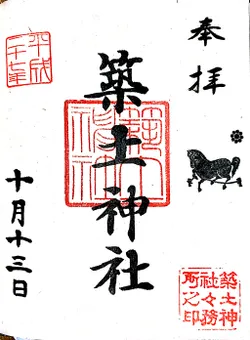 奉拝
築土神社
十月十三日
平成
二十七年
築土神
社々務
所之印